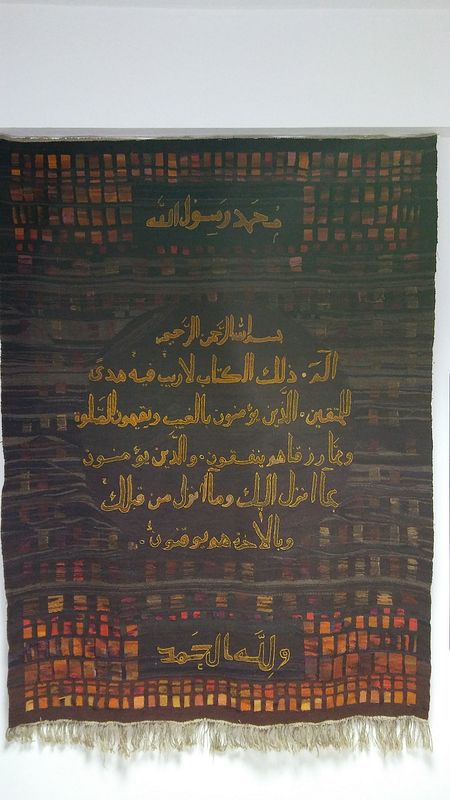 محمد رسول الله
بسم الله الرحمن الرحيم
الٓمٓ . ذلك الكتاب لا ريب فيه هدىً
للمتقين . الذين يؤمنون بالغيب ويقيمون الصلوة
ومما رزقناهم ينفقون . والذين يؤمنون
بمآ انزل اليك ومآ انزل من قبلك
وبالاخرة هم يوقنون .
ولله الحمد